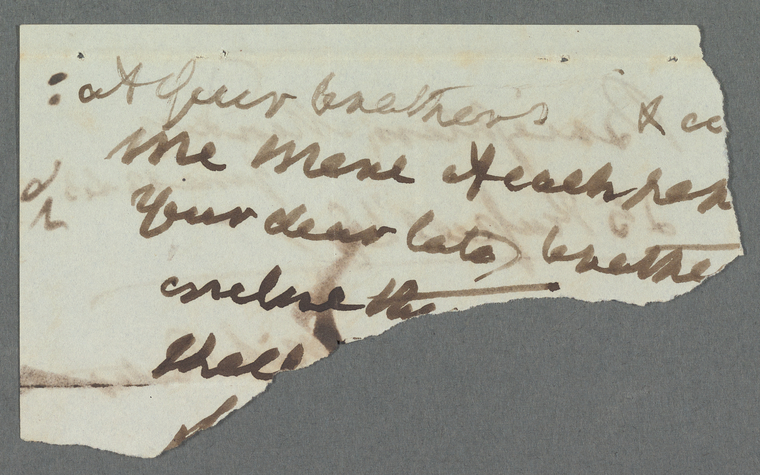 at your brothers & ac
me more attach
your dear late, brothe
enclose the
shall